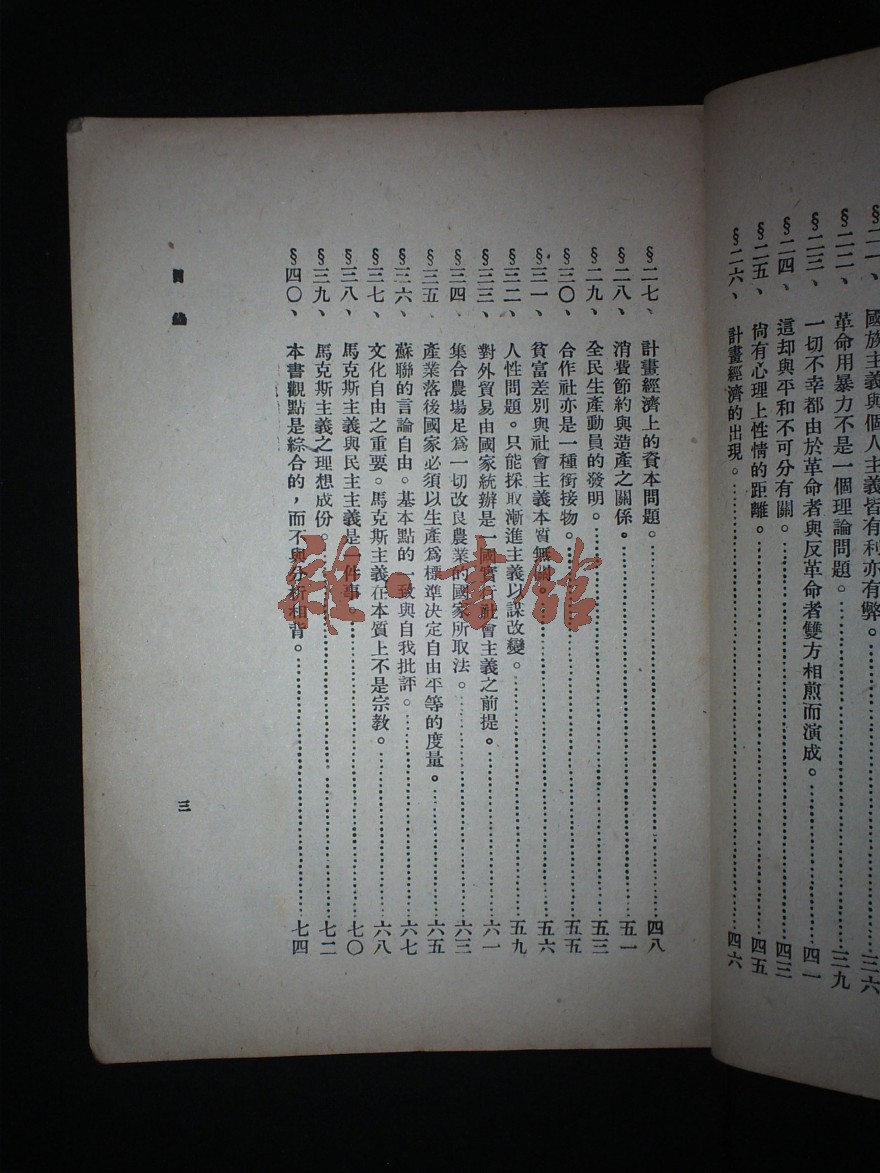 §二一、國族主義與個人主義皆有利亦有弊。……三六
§二二、革命用暴力不是一個理論問題。……三九
§二三、一切不幸都由於革命者與反革命者雙方相煎而演成。……四一
§二四、這却與平和不可分有關。……四三
§二五、尙有心理上性情的距離。……四五
§二六、計畫經濟的出現。……四六
§二七、計畫經濟上的資本問題。……四八
§二八、消費節約與造產之關係。……五一
§二九、全民生產動員的發明。……五三
§三〇、合作社亦是一種銜接物。……五五
§三一、貧富差別與社會主義本質無關。……五六
§三二、人性問題。只能採取漸進主義以謀改變。……五九
§三三、對外貿易由國家統辦是一國實行社會主義之前提。……六一
§三四、集合農場足爲一切改良農業的國家所取法。……六三
§三五、產業落後國家必須以生產爲標準決定自由平等的度量。……六五
§三六、蘇聯的言論自由。基本點的一致與自我批評。……六七
§三七、文化自由之重要。馬克斯主義在本質上不是宗教。……六八
§三八、馬克斯主義與民主主義是一件事。……七〇
§三九、馬克斯主義之理想成份。……七二
§四〇、本書觀點是綜合的，而不與分析相背。……七四
目錄
三
雜·書館